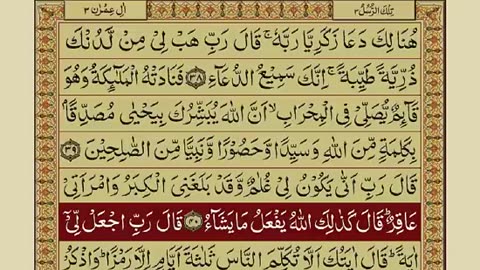 تِلْكَ الرُّسُلُ ٣
اٰلِ عِمْرٰن ٣
هُنَالِكَ دَعَا زَكَرِيَّا رَبَّهٗ ۚ قَالَ رَبِّ هَبْ لِىْ مِنْ لَّدُنْكَ
ذُرِّيَّةً طَيِّبَةً ۚ اِنَّكَ سَمِيْعُ الدُّعَآءِ ﴿٣٨﴾ فَنَادَتْهُ الْمَلٰٓئِكَةُ وَهُوَ
قَآئِمٌ يُّصَلِّىْ فِى الْمِحْرَابِ ۙ اَنَّ اللّٰهَ يُبَشِّرُكَ بِيَحْيٰى مُصَدِّقًاۢ
بِكَلِمَةٍ مِّنَ اللّٰهِ وَسَيِّدًا وَّحَصُوْرًا وَّنَبِيًّا مِّنَ الصّٰلِحِيْنَ ﴿٣٩﴾
قَالَ رَبِّ اَنّٰى يَكُوْنُ لِىْ غُلٰمٌ وَّقَدْ بَلَغَنِىَ الْكِبَرُ وَامْرَاَتِىْ
عَاقِرٌ ؕ قَالَ كَذٰلِكَ اللّٰهُ يَفْعَلُ مَا يَشَآءُ ﴿٤٠﴾ قَالَ رَبِّ اجْعَلْ لِّىْۤ
اٰيَةً ؕ قَالَ اٰيَتُكَ اَلَّا تُكَلِّمَ النَّاسَ ثَلٰثَةَ اَيَّامٍ اِلَّا رَمْزًا ؕ وَاذْكُرْ